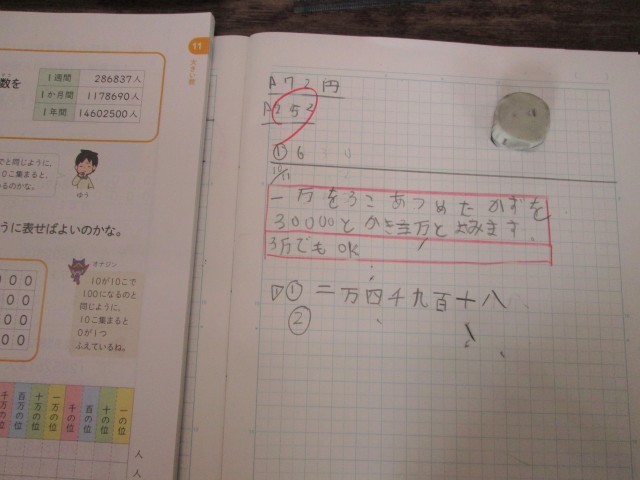 11
大きい数
数を
1週間 286837人
1か月間 1178690人
1年間 14602500人
で と同じように、
0こ集まると、
るのかな。
ゆう
うに表せばよいのかな。
オナジン
10が10こで
100になるのと
同じように、
10こ集まると
0が1つ
ふえているね。
千万の位 百万の位 十万の位 一万の位 千の位 百の位 十の位 一の位
人
人
A 72円
A 252
① 6
10/11
一万を3こあつめたかずを
30000とかき三万とよみます。
3万でもOK
▷① 二万四千九百十八
②